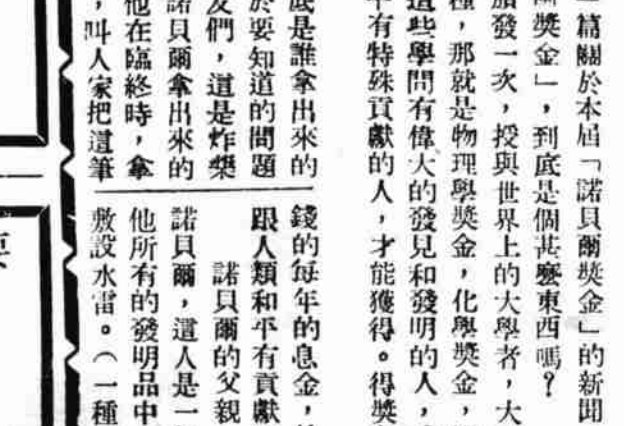 篇關於本屆「諾貝爾獎金」的新聞
獎金」,到底是個甚麼東西嗎?
發一次,授與世界上的大學者,大
種,那就是物理學獎金,化學獎金,
這些學問有偉大的發見和發明的人,
有特殊貢獻的人,才能獲得。得獎
底是誰拿出來的
於要知道的問題
友們,這是炸藥
諾貝爾拿出來的
他在臨終時,拿
,叫人家把這筆
錢的每年的息金,
跟人類和平有貢獻
諾貝爾的父親
諾貝爾,這人是一
他所有的發明品中
敷設水雷。(一種